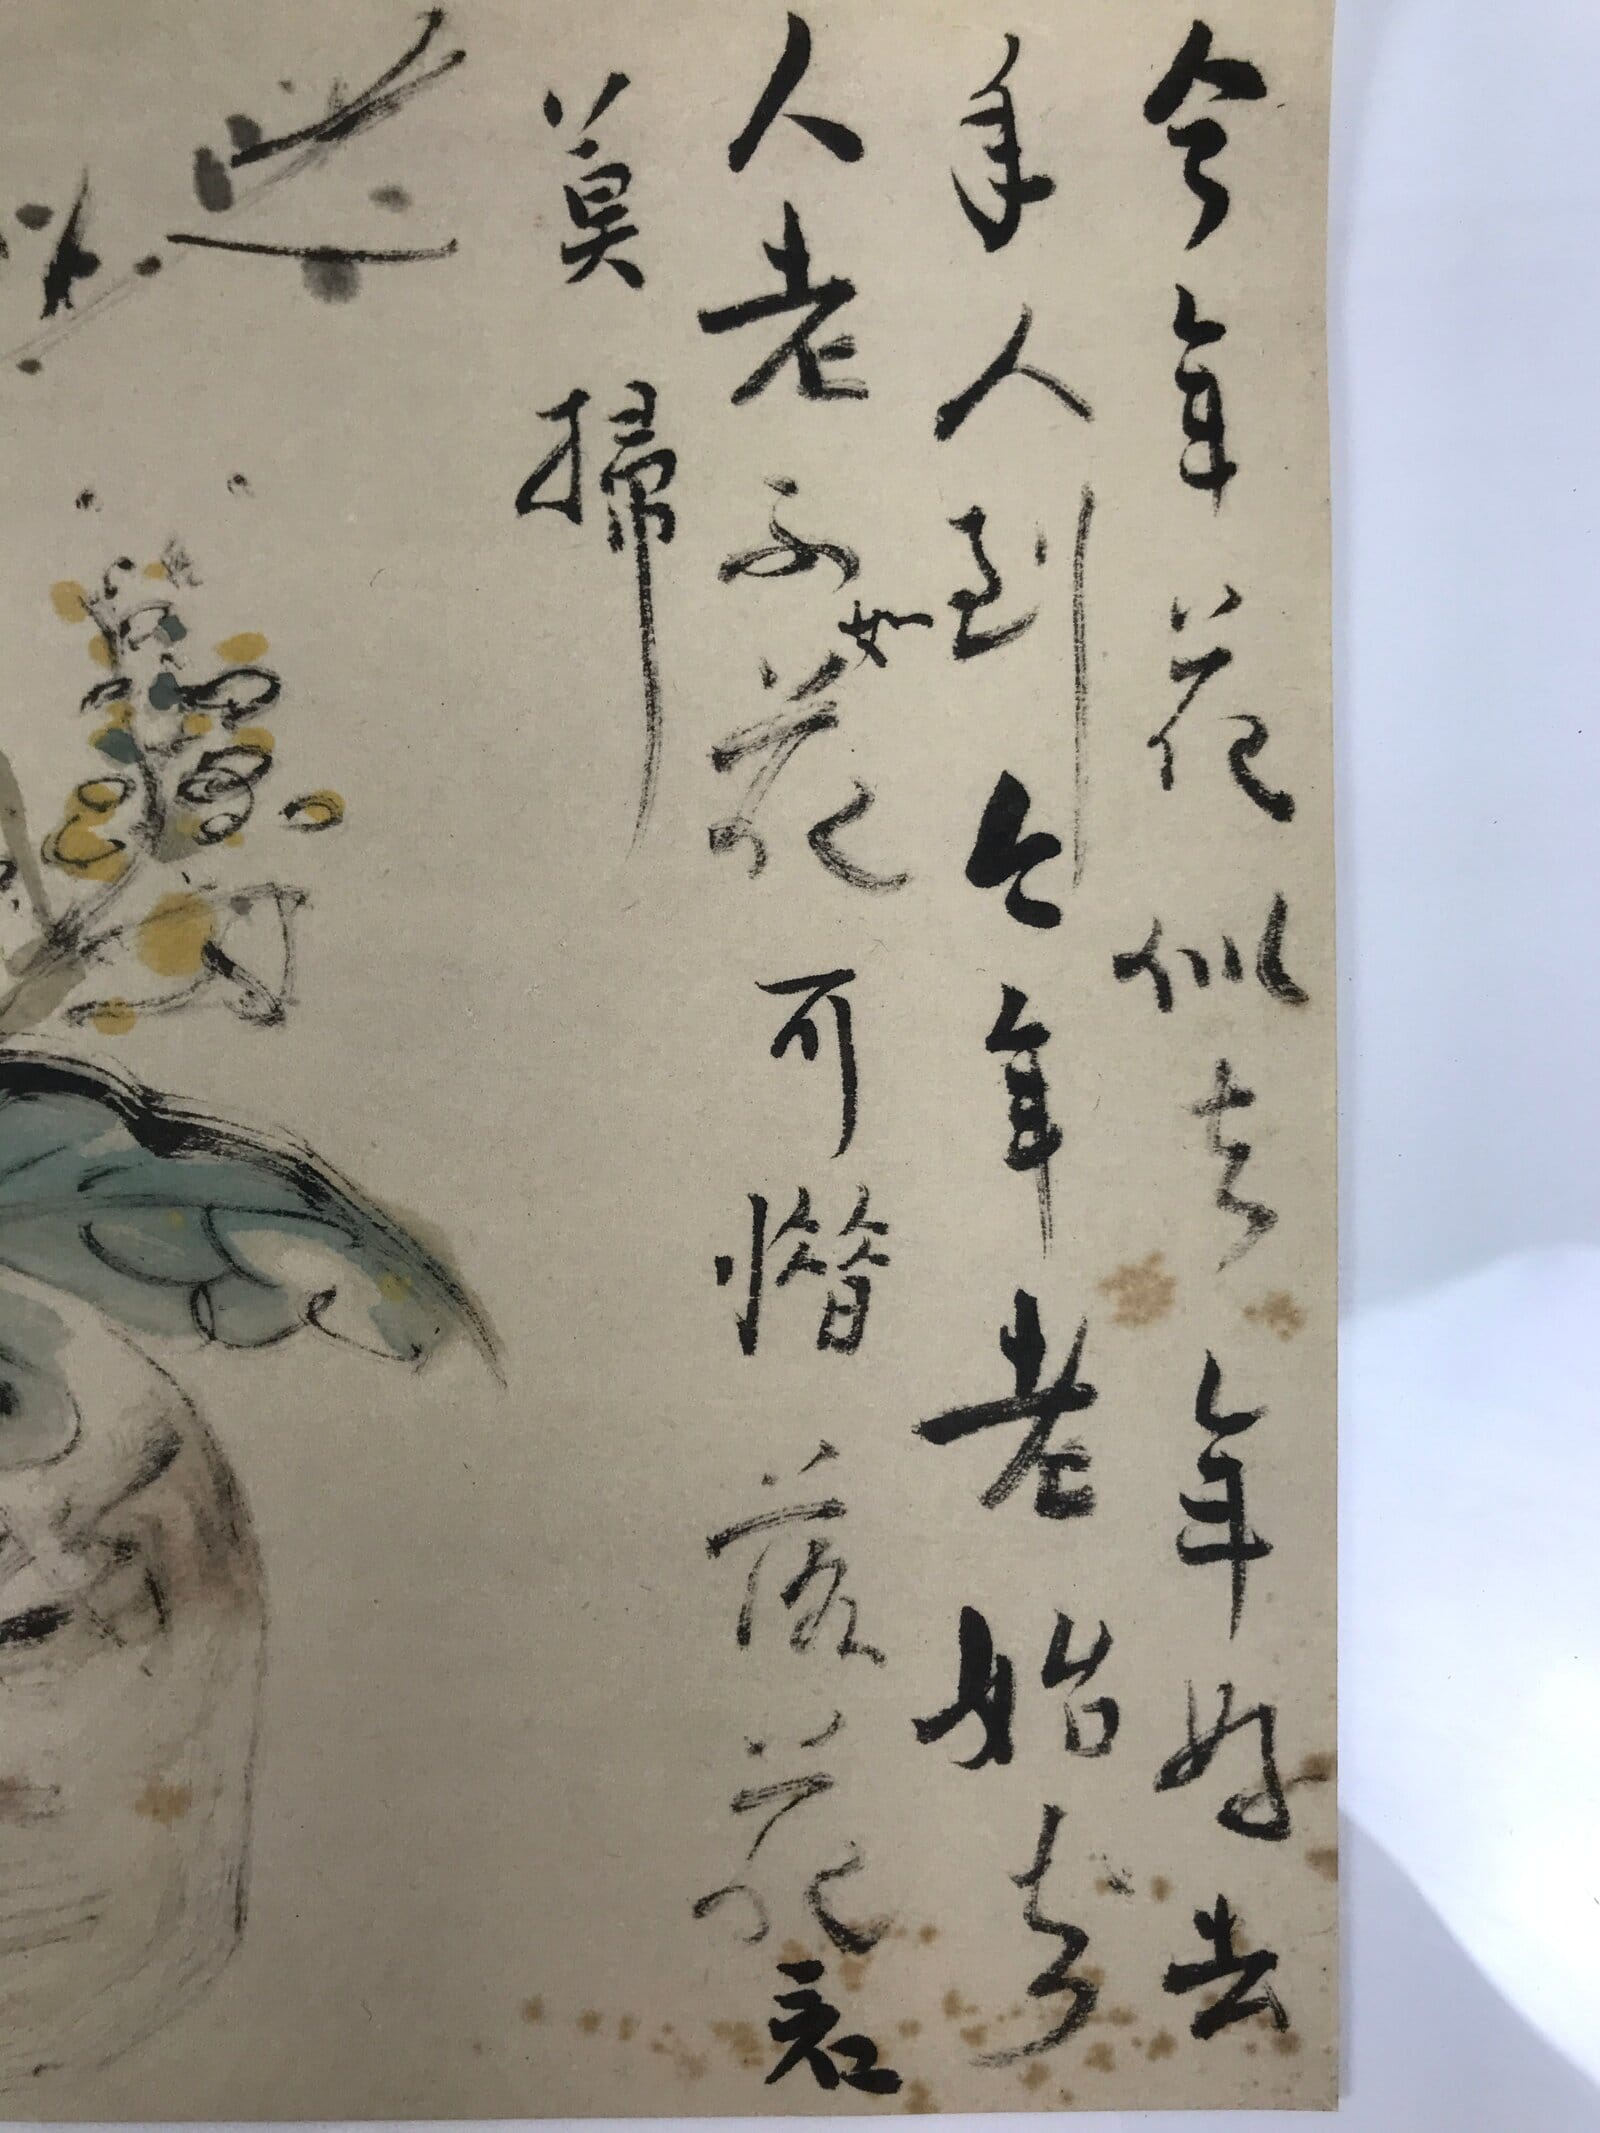 今年花似去年好去
年人到今年老始知
人老不如花可惜落花君
莫掃